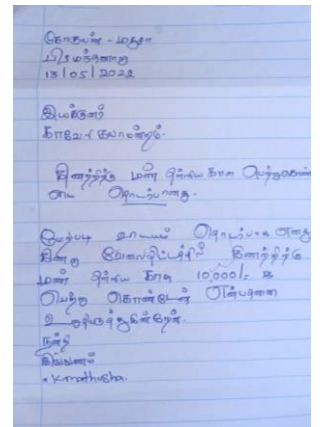 கோகுலன் - மதுசா
பிரமந்தனாறு
13/05/2022
இயக்குனர்
காவேரி கலாமன்றம்.
கிணற்றிற்கு மண் அள்ளிய காசு பெற்றுகொண்
மை தொடர்பானது.
மேற்படி விடயம் தொடர்பாக எனது
கிணறு வேலைத்திட்டத்தில் கிணற்றிற்கு
மண் அள்ளிய காசு 10,000/=
பெற்று கொண்டேன் என்பதனை
உறுதிபடுத்துகின்றேன்.
நன்றி
இவ்வண்ணம்
K.mathusha.